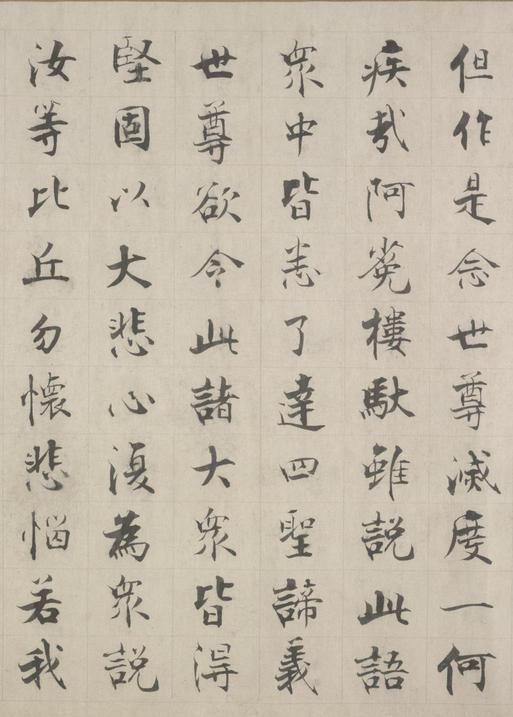 但作是念世尊滅度一何
疾哉阿㝹樓馱雖說此語
眾中皆悉了達四聖諦義
世尊欲令此諸大眾皆得
堅固以大悲心復為眾說
汝等比丘勿懷悲惱若我